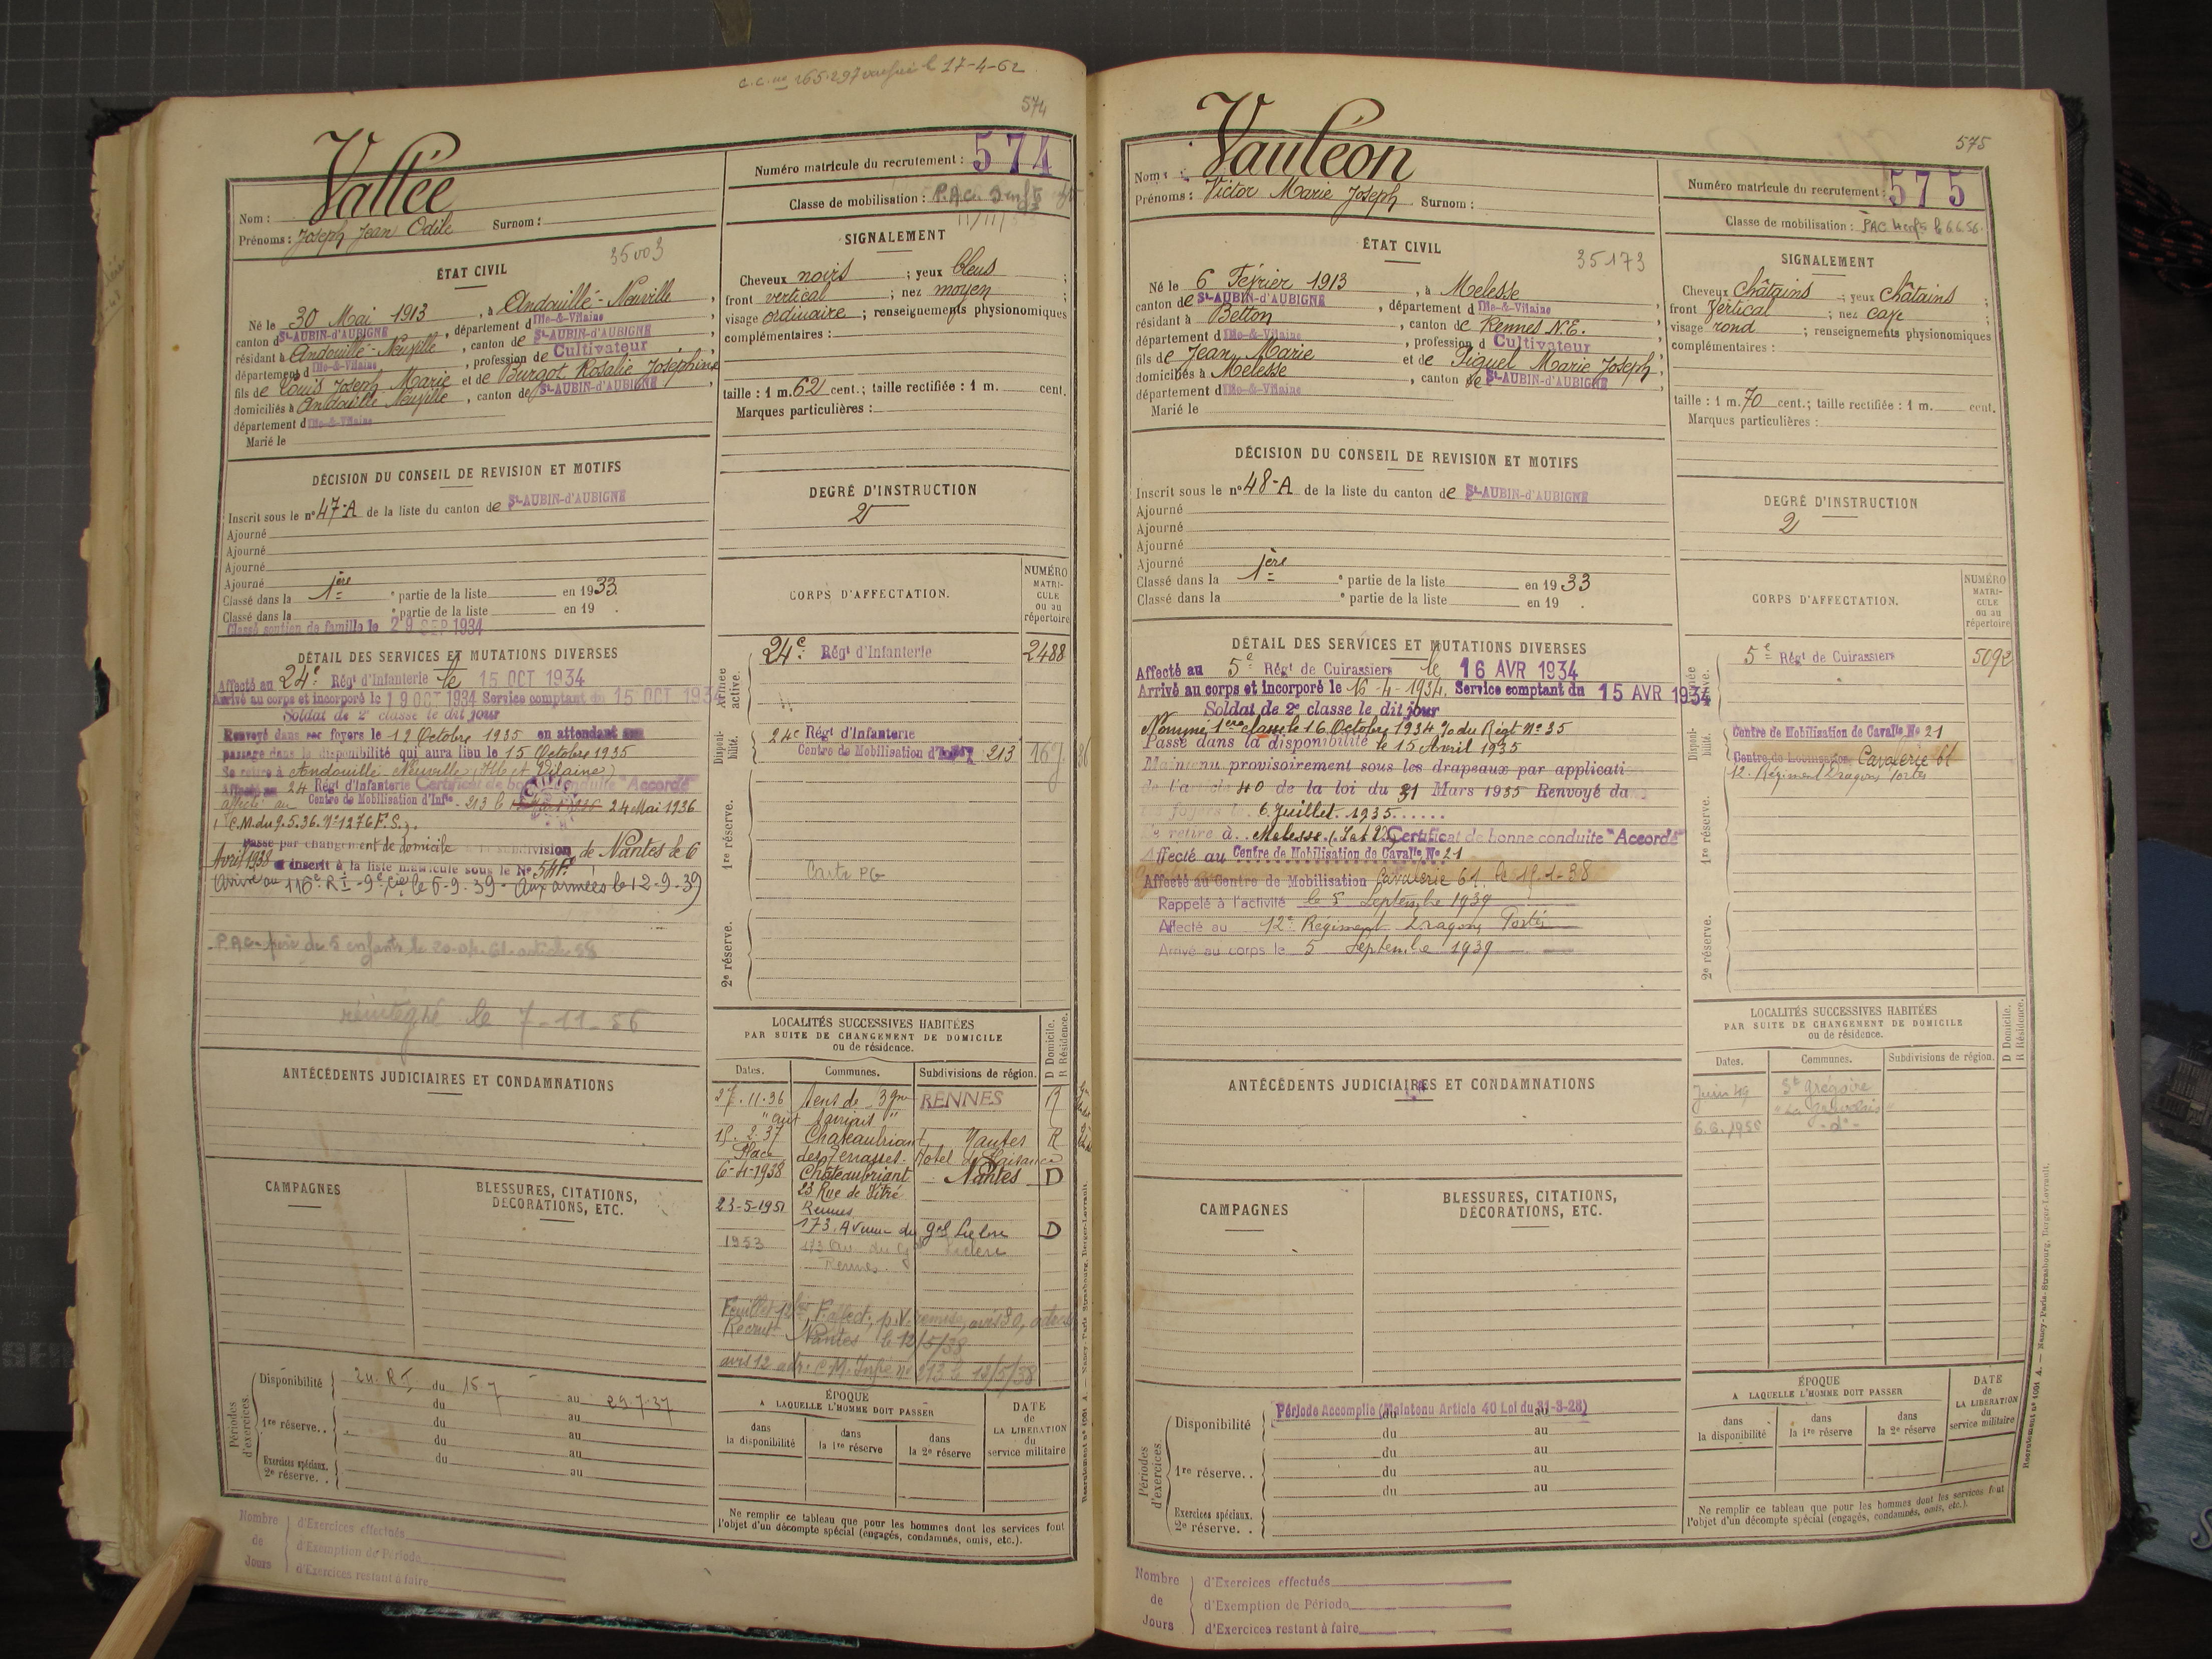 c.c. no 165.297 le 17-4-62
574
Vallée
Nom :
Prénoms : Joseph Jean Odile Surnom :
35003
ÉTAT CIVIL
Né le 30 Mai 1913, à Andouillé-Neuville,
canton d St-AUBIN-d'AUBIGNE, département d Ille-&-Vilaine,
résidant à Andouillé-Neuville, canton de St-AUBIN-d'AUBIGNE,
département d Ille-&-Vilaine, profession de Cultivateur
fils de Louis Joseph Marie et de Burgot Rosalie Joséphine,
domiciliés à Andouillé Neuville, canton de St-AUBIN-d'AUBIGNE,
département d Ille-&-Vilaine
Marié le
DÉCISION DU CONSEIL DE REVISION ET MOTIFS
Inscrit sous le n° 47-A de la liste du canton de St-AUBIN-d'AUBIGNE
Ajourné
Ajourné
Ajourné
Ajourné
Classé dans la 1ère e partie de la liste en 1933.
Classé dans la e partie de la liste en 19 .
Classé soutien de famille le 29 SEP 1934
DÉTAIL DES SERVICES ET MUTATIONS DIVERSES
Affecté au 24e Régt d'Infanterie le 15 OCT 1934
Arrivé au corps et incorporé le 19 OCT 1934 Service comptant du 15 OCT 1934
Soldat de 2e classe le dit jour
Renvoyé dans ses foyers le 12 Octobre 1935 en attendant son
passage dans la disponibilité qui aura lieu le 15 Octobre 1935
Se retire à Andouillé-Neuville (Ille et Vilaine)
Affecté au 24 Régt d'Infanterie Certificat de bonne conduite "Accordé"
affecté au Centre de Mobilisation d'Infie 213 le 24 Mai 1936
(C.M. du 9.5.36. N° 1276 F.S.).
Passé par changement de domicile subdivision de Nantes le 6
Avril 1938 et inscrit à la liste matricule sous le N°
Arrivé au 116e R.I. - 9e Cie le 5-9-39 - Aux armées le 12-9-39
P.A.C. père de 5 enfants le
réintégré le 7-11-56
ANTÉCÉDENTS JUDICIAIRES ET CONDAMNATIONS
CAMPAGNES
BLESSURES, CITATIONS,
DÉCORATIONS, ETC.
Périodes d'exercices
Disponibilité 24. R I du 15 7 au 29.7.37
du au
1re réserve.. du au
du au
Exercices spéciaux. du au
2e réserve. . au
Nombre de Jours
d'Exercices effectués
d'Exemption de Période
d'Exercices restant à faire
Numéro matricule du recrutement : 574
Classe de mobilisation : P.A.C. 5 enfts
SIGNALEMENT
Cheveux noirs ; yeux bleus ;
front vertical ; nez moyen ;
visage ordinaire ; renseignements physionomiques
complémentaires :
taille : 1 m. 62 cent.; taille rectifiée : 1 m. cent.
Marques particulières :
DEGRÉ D'INSTRUCTION
2
CORPS D'AFFECTATION.
NUMÉRO MATRI-CULE ou au répertoire
Armée active.
24e Régt d'Infanterie 2488
Disponi-bilité.
24e Régt d'Infanterie
Centre de Mobilisation d'Infie 213
1re réserve.
Carte PG
2e réserve.
LOCALITÉS SUCCESSIVES HABITÉES
PAR SUITE DE CHANGEMENT DE DOMICILE
ou de résidence.
D Domicile.
R Résidence.
Dates. Communes. Subdivisions de région.
27.11.36 Sens de RENNES R
15.2.37 Chateaubriant Nantes R
Place des Terrasses Hotel de Plaisance
6-4-1938 Châteaubriant Nantes D
23 Rue de Vitré
23-5-1951 Rennes
173, Avenue du Gal Leclerc D
1953 173 Av. du Gal Leclerc
Rennes
Recrut Nantes le 12/5/38
avis 12 adr. C.M. Infie n° 213 le 12/5/38
ÉPOQUE
A LAQUELLE L'HOMME DOIT PASSER
dans la disponibilité
dans la 1re réserve
dans la 2e réserve
DATE de LA LIBÉRATION du service militaire
Ne remplir ce tableau que pour les hommes dont les services font
l'objet d'un décompte spécial (engagés, condamnés, omis, etc.).
575
Vauléon
Nom :
Prénoms : Victor Marie Joseph Surnom :
35173
ÉTAT CIVIL
Né le 6 Février 1913, à Melesse
canton de St-AUBIN-d'AUBIGNE, département d Ille-&-Vilaine,
résidant à Betton, canton de Rennes N.E.
département d Ille-&-Vilaine, profession d Cultivateur
fils de Jean Marie et de Piguel Marie Joseph,
domiciliés à Melesse, canton de St-AUBIN-d'AUBIGNE,
département d Ille-&-Vilaine
Marié le
DÉCISION DU CONSEIL DE REVISION ET MOTIFS
Inscrit sous le n° 48-A de la liste du canton de St-AUBIN-d'AUBIGNE
Ajourné
Ajourné
Ajourné
Ajourné
Classé dans la 1ère e partie de la liste en 1933
Classé dans la e partie de la liste en 19 .
DÉTAIL DES SERVICES ET MUTATIONS DIVERSES
Affecté au 5e Régt de Cuirassiers le 16 AVR 1934
Arrivé au corps et incorporé le 16-4-1934. Service comptant du 15 AVR 1934
Soldat de 2e classe le dit jour
Nommé 1ere classe le 16 Octobre 1934 %o du Régt N° 35
Passé dans la disponibilité le 15 Avril 1935
Maintenu provisoirement sous les drapeaux par applicati
de l'article 40 de la loi du 31 Mars 1935 Renvoyé da
foyers le 6. Juillet. 1935......
Se retire à Melesse. (I et V) Certificat de bonne conduite "Accordé"
Affecté au Centre de Mobilisation de Cavalie N° 21
Affecté au Centre de Mobilisation Cavalerie 61. le 15-1-38
Rappelé à l'activité le 5 Septembre 1939
Affecté au 12e Régiment Dragons Portés
Arrivé au corps le 5 Septembre 1939
ANTÉCÉDENTS JUDICIAIRES ET CONDAMNATIONS
CAMPAGNES
BLESSURES, CITATIONS,
DÉCORATIONS, ETC.
Périodes d'exercices
Disponibilité Période Accomplie (Maintenu Article 40 Loi du 31-3-28)
du au
du au
1re réserve.. du au
du au
du au
Exercices spéciaux.
2e réserve. .
Nombre de Jours
d'Exercices effectués
d'Exemption de Période
d'Exercices restant à faire
Numéro matricule du recrutement : 575
Classe de mobilisation : PAC 4 enfts le 6.6.56.
SIGNALEMENT
Cheveux châtains ; yeux châtains ;
front Vertical ; nez cave ;
visage rond ; renseignements physionomiques
complémentaires :
taille : 1 m. 70 cent.; taille rectifiée : 1 m. cent.
Marques particulières :
DEGRÉ D'INSTRUCTION
2
CORPS D'AFFECTATION.
NUMÉRO MATRI-CULE ou au répertoire
5e Régt de Cuirassiers 5092
Disponi-bilité.
Centre de Mobilisation de Cavalie N° 21
Centre de Mobilisation Cavalerie 61
12. Régiment Dragons Portés
1re réserve.
2e réserve.
LOCALITÉS SUCCESSIVES HABITÉES
PAR SUITE DE CHANGEMENT DE DOMICILE
ou de résidence.
D Domicile.
R Résidence.
Dates. Communes. Subdivisions de région.
Juin 49 St Grégoire
6.6.1956 -do-
ÉPOQUE
A LAQUELLE L'HOMME DOIT PASSER
dans la disponibilité
dans la 1re réserve
dans la 2e réserve
DATE de LA LIBÉRATION du service militaire
Ne remplir ce tableau que pour les hommes dont les services font
l'objet d'un décompte spécial (engagés, condamnés, omis, etc.).
Recrutement n° 1001 A. — Nancy-Paris-Strasbourg, Berger-Levrault.